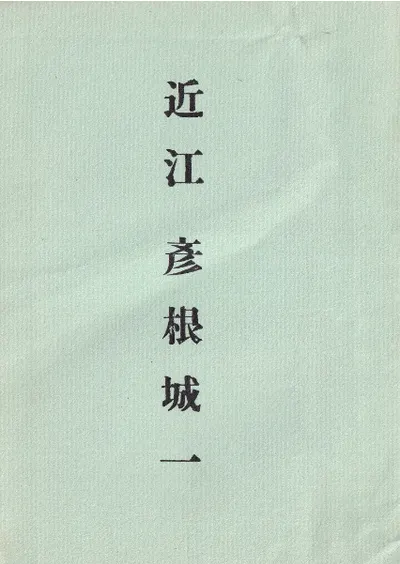 近江 彦根城一